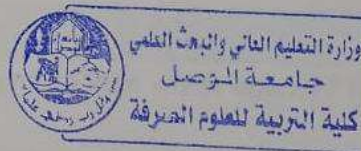 وزارة التعليم العالي والبحث العلمي
جامعة الموصل
كلية التربية للعلوم الصرفة
وقل رب زدني علما